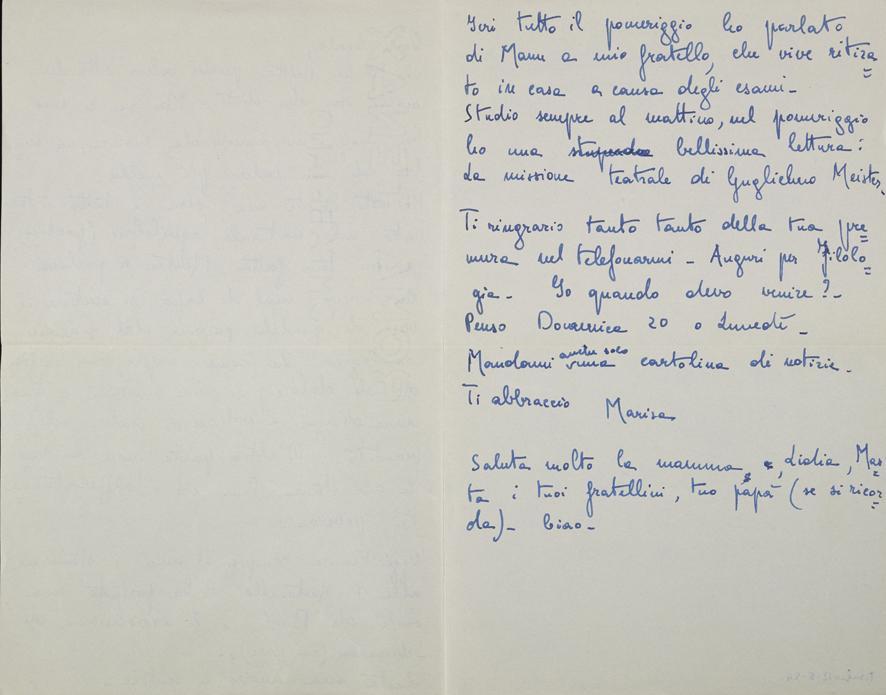 Ieri tutto il pomeriggio ho parlato
di Mann a mio fratello, che vive ritira
to in casa a causa degli esami -
Studio sempre al mattino, nel pomeriggio
ho una stupenda bellissima lettura:
La missione teatrale di Guglielmo Meister.
Ti ringrazio tanto tanto della tua pre
mura nel telefonarmi - Auguri per Filolo
gia - Io quando devo venire? -
Penso Domenica 20 o Lunedì -
Mandami anche solo una cartolina di notizie -
Ti abbraccio
Marisa
Saluta molto la mamma, Lidia, Mar
ta i tuoi fratellini, tuo papà (se si ricor
da) - Ciao -